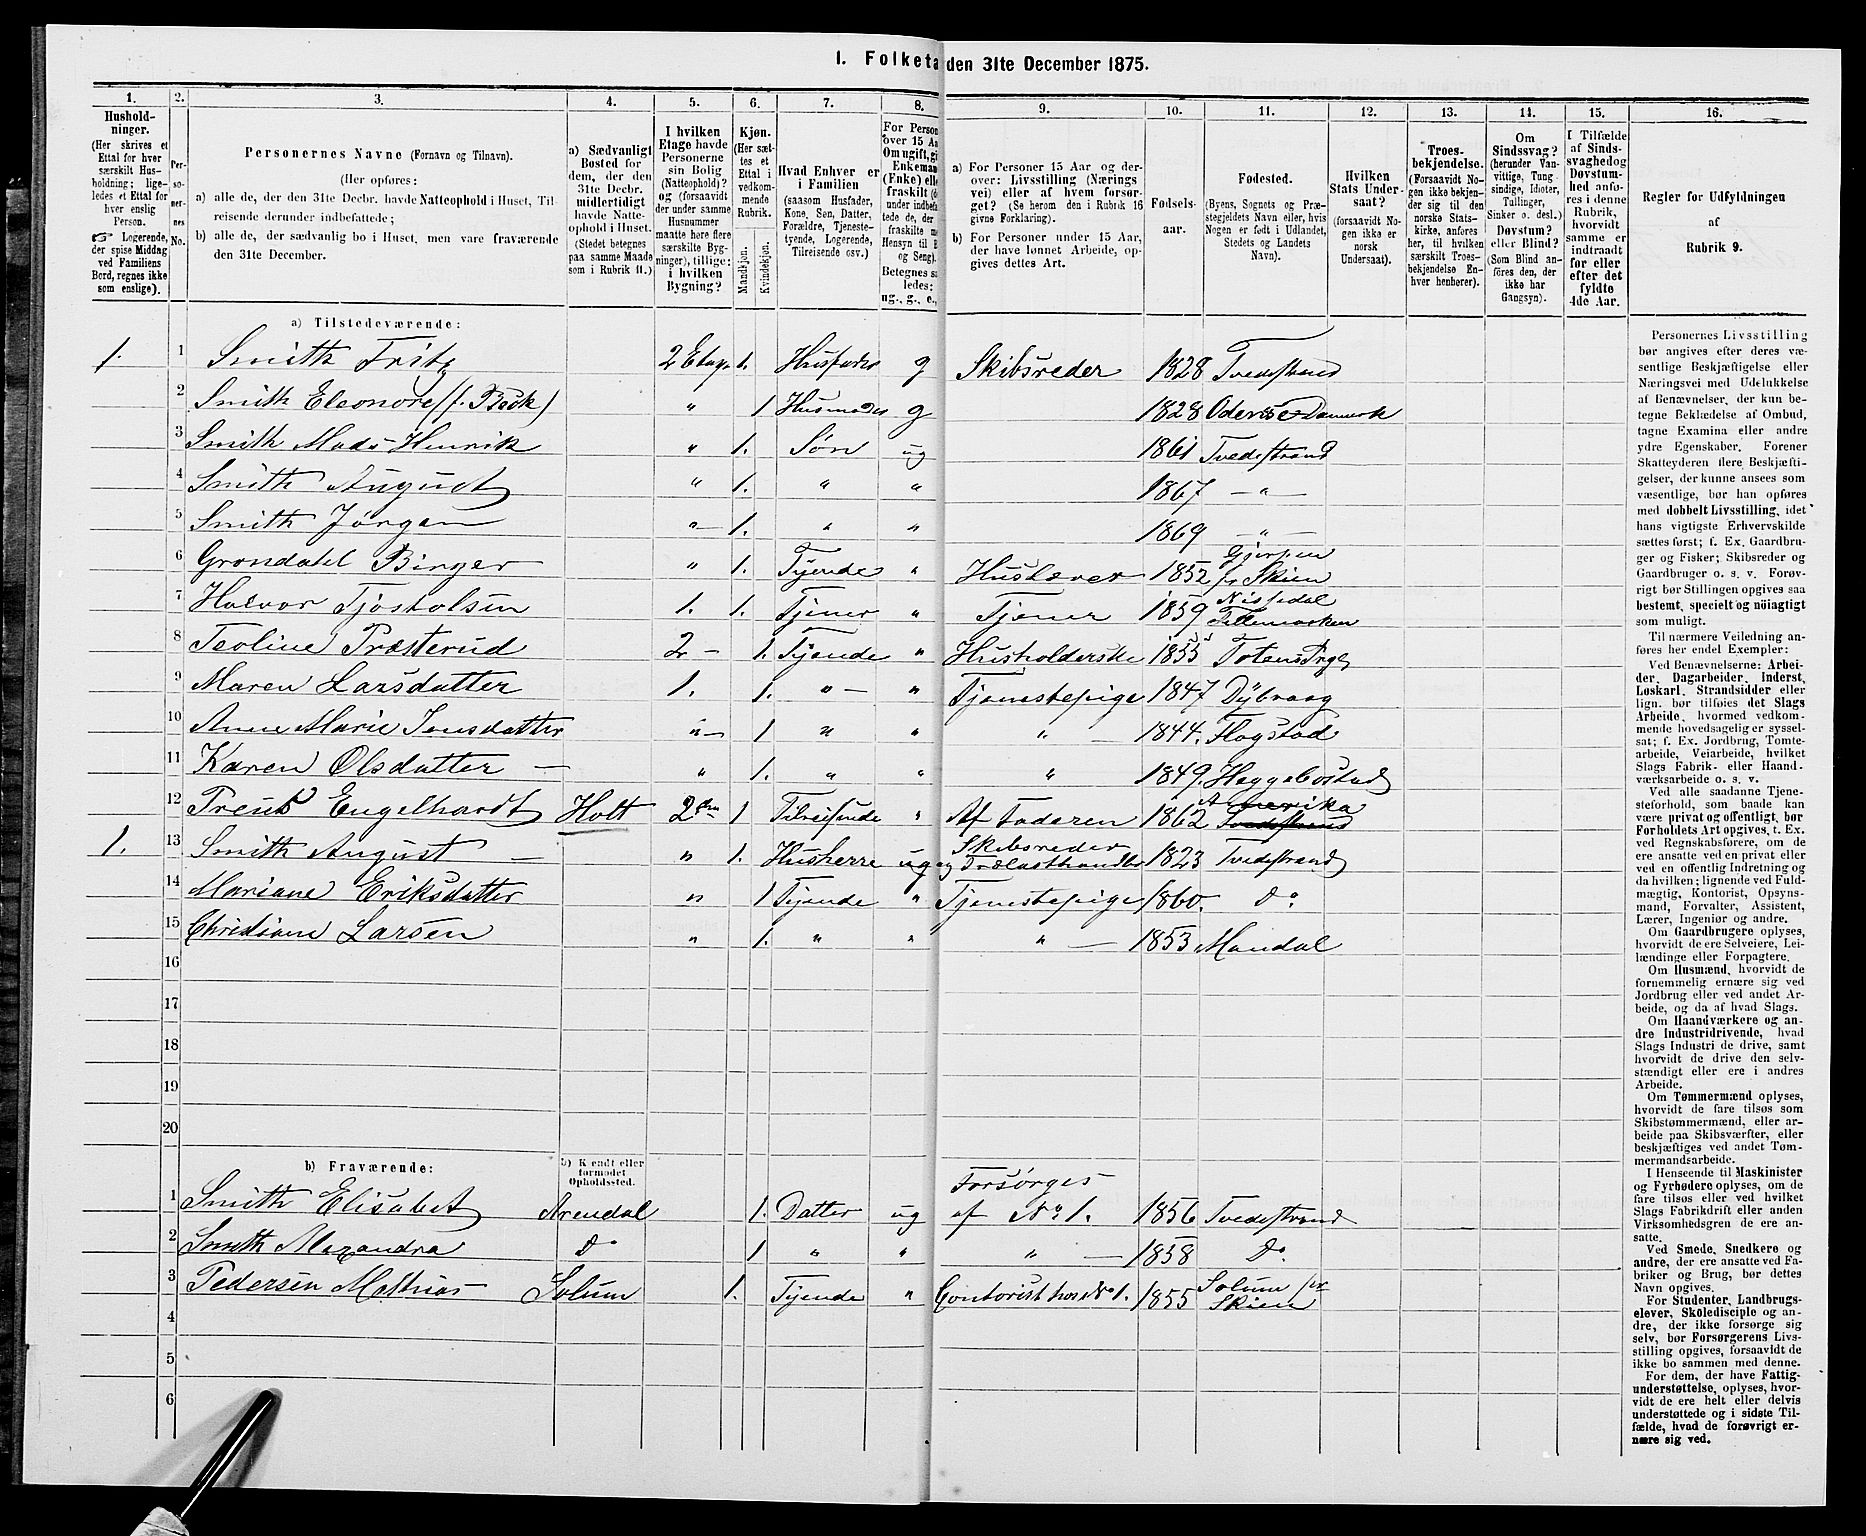 1. Folketa
den 31te December 1875.
1. 2. 3. 4. 5. 6. 7. 8. 9. 10. 11. 12. 13. 14. 15. 16.
Hushold-
ninger.
(Her skrives et
Ettal for hver
særskilt Hus-
holdning; lige-
ledes et Ettal for
hver enslig
Person.
☞ Logerende,
der spise Middag
ved Familiens
Bord, regnes ikke
som enslige).
Per-
so-
ner-
nes
No.
Personernes Navne (Fornavn og Tilnavn).
(Her opføres:
a) alle de, der den 31te Decbr. havde Natteophold i Huset, Til-
reisende derunder indbefattede;
b) alle de, der sædvanlig bo i Huset, men vare fraværende
den 31te December.
a) Sædvanligt
Bosted for
dem, der den
31te Decbr.
midlertidigt
havde Natte-
ophold i Huset.
(Stedet betegnes
paa samme Maade
som i Rubrik 11.)
I hvilken
Etage havde
Personerne
sin Bolig
(Natteophold)?
og (forsaavidt
der under samme
Husnummer
maatte høre flere
særskilte Byg-
ninger), tillige:
i hvilken
Bygning?
Kjøn.
(Her sæt-
tes et
Ettal i
vedkom-
mende
Rubrik.
Mandkjøn.
Kvindekjøn.
Hvad Enhver er
i Familien
(saasom Husfader,
Kone, Søn, Datter,
Forældre, Tjeneste-
tyende, Logerende,
Tilreisende osv.)
For Person
over 15 Aa
Om ugift, gi
Enkeman
(Enke) elle
fraskilt (
tede de, de
fraskilte m
Hensyn til B
og Seng).
Betegnes sa
ledes:
ug., g., e.,
a) For Personer 15 Aar og der-
over: Livsstilling (Nærings
vei) eller af hvem forsør-
get? (Se herom den i Rubrik 16
givne Forklaring).
b) For Personer under 15 Aar,
der have lønnet Arbeide, op-
gives dettes Art.
Fødsels-
aar.
Fødested.
(Byens, Sognets og Præ-
stegjeldets Navn eller, hvis
Nogen er født i Udlandet,
Stedets og Landets
Navn).
Hvilken
Stats Under-
saat?
(forsaavidt No-
gen ikke er
norsk
Undersaat).
Troes-
bekjendelse.
(Forsaavidt No-
gen ikke bekjen-
der sig til den
norske Stats-
kirke, anføres
her, til hvilken
særskilt Troes-
bekjendelse En-
hver henhører).
Om
Sindssvag?
(herunder Van-
vittige, Tung-
sindige, Idioter,
Tullinger,
Sinker o. desl.)
Døvstum?
eller Blind?
(Som Blind an-
føres den, der
ikke har
Gangsyn).
I Tilfælde
af Sinds-
svaghed og
Døvstum-
hed anfø-
res i denne
Rubrik,
hvorvidt
samme er
indtraadt
før eller
efter det
fyldte
4de Aar.
Regler for Udfyldningen
af
Rubrik 9.
a) Tilstedeværende:
1. 1 Smith Fritz 2 Etage 1. Husfader g Skibsreder 1828 Tvedestrand
2 Smith Eleonore (f. Beck) " 1 Husmoder g 1828 Odense Danmark
3 Smith Mads Henrik " 1. Søn ug 1861 Tvedestrand
4 Smith August " 1. " " 1867 — " —
5 Smith Jørgen " — 1. " " 1869 — " —
6 Grøndahl Birger " 1. Tyende " Huslærer 1852 Gjerpen
pr Skien
7 Halvor Tjøstolsen 1. 1. Tjener " Tjener 1859 Nissedal
Tellemarken
8 Teoline Præsterud 2 — 1. Tyende " Husholderske 1855 Totens Prgj
9 Maren Larsdatter 1. 1. " — " Tjenestepige 1847 Dybvaag
10 Anne Marie Jensdatter " — 1 " " " — 1844. Flogstad
11 Karen Olsdatter — " 1. " " " 1849. Heggebostad
12 Engelhardt Holt 2 1 Tilreisende " Af Faderen 1862 Amerika
Tvedestrand
1. 13 Smith August — " 1. Husherre ug Skibsreder
og Trælasthandler 1823 Tvedestrand
14 Mariane Eriksdatter " 1 Tyende " Tjenestepige 1860. Do
15 Christiane Larsen " 1. " " " — 1853 Mandal
16
17
18
19
20
b) Fraværende:
b) Kjendt eller
formodet
Opholdssted.
1 Smith Elisabet Arendal 1. Datter ug Forsørges
af No 1. 1856 Tvedestrand
2 Smith Alexandra Do 1 " " " — 1858 Do.
3 Pedersen Mathias Solum 1. Tyende " Contorist hos No 1. 1855 Solum pr
Skien
4
5
6
Personernes Livsstilling
bør angives efter deres væ-
sentlige Beskjæftigelse eller
Næringsvei med Udelukkelse
af Benævnelser, der kun be-
tegne Beklædelse af Ombud,
tagne Examina eller andre
ydre Egenskaber. Forener
Skatteyderen flere Beskjæfti-
gelser, der kunne ansees som
væsentlige, bør han opføres
med dobbelt Livsstilling, idet
hans vigtigste Erhvervskilde
sættes først; f. Ex. Gaardbru-
ger og Fisker; Skibsreder og
Gaardbruger o. s. v. Forøv-
rigt bør Stillingen opgives saa
bestemt, specielt og nöiagtigt
som muligt.
Til nærmere Veiledning an-
føres her endel Exempler:
Ved Benævnelserne: Arbei-
der, Dagarbeider, Inderst,
Løskarl, Strandsidder eller
lign. bør tilføies det Slags
Arbeide, hvormed vedkom-
mende hovedsagelig er syssel-
sat; f. Ex. Jordbrug, Tomte-
arbeide, Veiarbeide, hvilket
Slags Fabrik- eller Haand-
værksarbeide o. s. v.
Ved alle saadanne Tjene-
steforhold, som baade kan
være privat og offentligt, bør
Forholdets Art opgives, t. Ex.
ved Regnskabsførere, om de
ere ansatte ved en privat eller
ved en offentlig Indretning og
da hvilken; lignende ved Fuld-
mægtig, Kontorist, Opsyns-
mand, Forvalter, Assistent,
Lærer, Ingeniør og andre.
Om Gaardbrugere oplyses,
hvorvidt de ere Selveiere, Lei-
lændinge eller Forpagtere.
Om Husmænd, hvorvidt de
fornemmelig ernære sig ved
Jordbrug eller ved andet Ar-
beide, og da af hvad Slags.
Om Haandværkere og an-
dre Industridrivende, hvad
Slags Industri de drive, samt
hvorvidt de drive den selv-
stændigt eller ere i andres
Arbeide.
Om Tømmermænd oplyses,
hvorvidt de fare tilsøs som
Skibstømmermænd, eller ar-
beide paa Skibsværfter, eller
beskjæftiges ved andet Tøm-
mermandsarbeide.
I Henseende til Maskinister
og Fyrbødere oplyses, om de
fare tilsøs eller ved hvilket
Slags Fabrikdrift eller anden
Virksomhedsgren de ere an-
satte.
Ved Smede, Snedkere og
andre, der ere ansatte ved Fa-
briker og Brug, bør dettes
Navn opgives.
For Studenter, Landbrugs-
elever, Skoledisciple og an-
dre, der ikke forsørge sig
selv, bør Forsørgerens Livs-
stilling opgives, forsaavidt de
ikke bo sammen med denne.
For dem, der have Fattig-
understøttelse, oplyses, hvor-
vidt de ere helt eller delvis
understøttede og i sidste Til-
fælde, hvad de forøvrigt er-
nære sig ved.